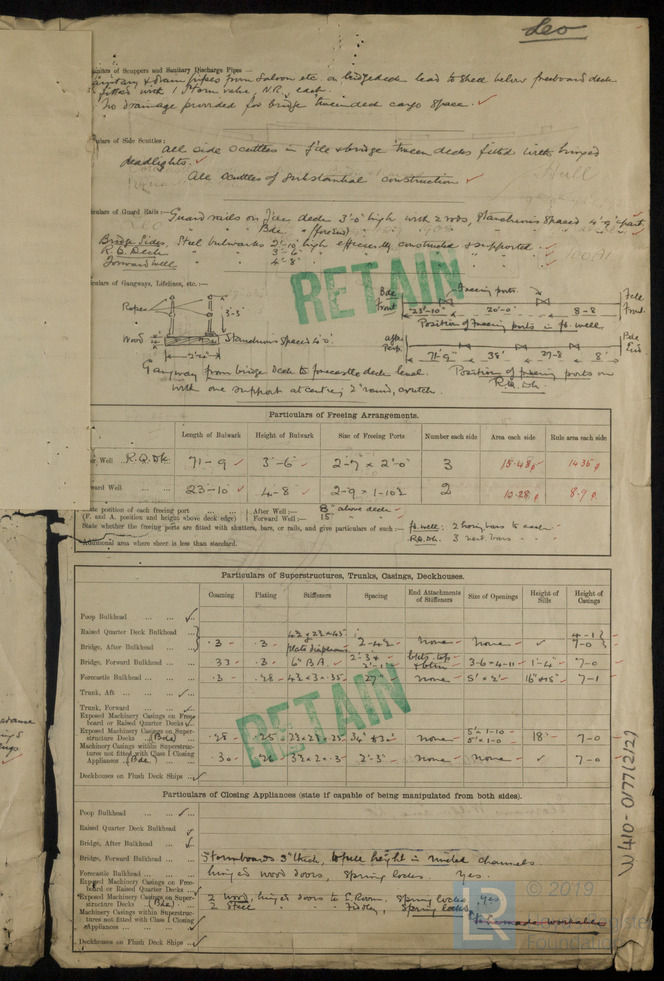 Leo
Scuppers and Sanitary Discharge Pipes —
drain pipes from saloon etc. on bridge deck lead to shell below freeboard deck
fitted with 1 storm valve, N.R. each.
No drainage provided for bridge tween deck cargo space. ✓
Side Scuttles:
All side scuttles in f'cle & bridge tween decks fitted with hinged
deadlights. ✓
All scuttles of substantial construction ✓
Guard Rails:—
Guard rails on f'cle deck 3'-0" high with 2 rods, stanchions spaced 4'-9" apart
Bde. " (for end)
Bridge Sides. Steel bulwarks 2'-10" high efficiently constructed & supported
R.Q. Deck " 3'-6" "
Forward well " 4'-8" "
RETAIN
of Gangways, Lifelines, etc.:—
Ropes
3'-3"
Wood
Stanchions spaced 4'0"
Bde Front
Freeing ports
Fcle Front
23'-10"
20'-0"
8-8
Position of freeing ports in fd. well
Bde End
71'-9"
38'
27-8
8'
Gangway from bridge deck to forecastle deck level.
with one support at centre, 2" round, crutch.
Position of freeing ports on
R.Q. Dk.
Particulars of Freeing Arrangements.
Length of Bulwark Height of Bulwark Size of Freeing Ports Number each side Area each side Rule area each side
Well R.Q.Dk 71-9 ✓ 3'-6" ✓ 2-7 x 2'-0" 3 15.48 14.36
Well 23-10 ✓ 4-8" ✓ 2-9 x 1-10½ 2 10.28 8.9
position of each freeing port After Well:— 8" above deck
(F. and A. position and height above deck edge) Forward Well:— 15"
State whether the freeing ports are fitted with shutters, bars, or rails, and give particulars of such:— fd. well: 2 hor. bars to each
R.Q. Dk. 3
Additional area where sheer is less than standard.
Particulars of Superstructures, Trunks, Casings, Deckhouses.
Coaming Plating Stiffeners Spacing End Attachments of Stiffeners Size of Openings Height of Sills Height of Casings
Poop Bulkhead ✓
Raised Quarter Deck Bulkhead
Bridge, After Bulkhead .3 .3 2-4½ None None ✓ 7-0
Bridge, Forward Bulkhead .33 .3 6" B.A. 3-6 x 4-11 1'-4" 7-0
Forecastle Bulkhead .3 .28 4½ x 3 x .35 27" None 5' x 2' 7-1
Trunk, Aft ✓
Trunk, Forward ✓
Exposed Machinery Casings on Freeboard or Raised Quarter Decks ✓
Exposed Machinery Casings on Superstructure Decks (Bde) .25 .25 None 5'-1-10 18" 7-0
Machinery Casings within Superstructures not fitted with Class 1 Closing Appliances (Bde) .30 .26 3½ x 2 x .3 2'-3" None None ✓ 7-0
Deckhouses on Flush Deck Ships ✓
RETAIN
Particulars of Closing Appliances (state if capable of being manipulated from both sides).
Poop Bulkhead ✓
Raised Quarter Deck Bulkhead ✓
Bridge, After Bulkhead ✓
Bridge, Forward Bulkhead Stormboards 3" thick, to full height in riveted channels
Forecastle Bulkhead hinged wood doors, spring locks. Yes.
Exposed Machinery Casings on Freeboard or Raised Quarter Decks ✓
Exposed Machinery Casings on Superstructure Decks (Bde) 2 Wood, hinged doors to E. Room. Spring locks, Yes
2 Steel " " Fidley, Spring locks
To be made workable
Machinery Casings within Superstructures not fitted with Class 1 Closing Appliances ✓
Deckhouses on Flush Deck Ships ✓
W410-0177(2/2)
LR
© 2019
Foundation